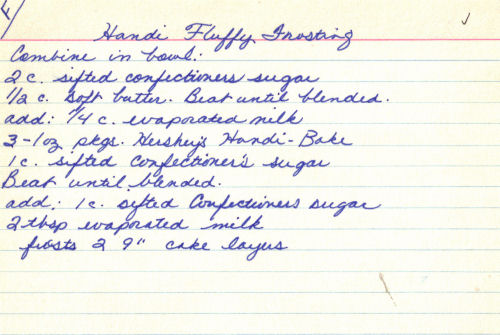 F
Handi Fluffy Frosting
Combine in bowl:
2 c. sifted confectioners sugar
1/2 c. soft butter. Beat until blended.
add: 1/4 c. evaporated milk
3-1oz pkgs. Hershey's Handi-Bake
1 c. sifted confectioner's sugar
Beat until blended.
add: 1 c. sifted Confectioners sugar
2 tbsp evaporated milk
frosts 2 9" cake layers